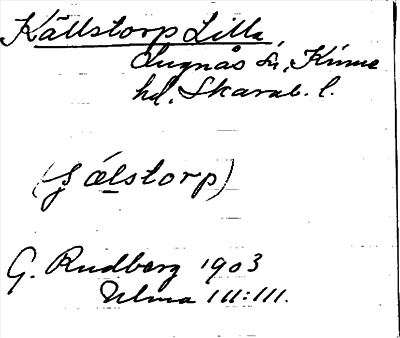 Källstorp Lilla,
Lugnås sn, Kinne
hd, Skarab. l.
(Sälstorp)
G. Rudberg 1903
Ulma 111:111.